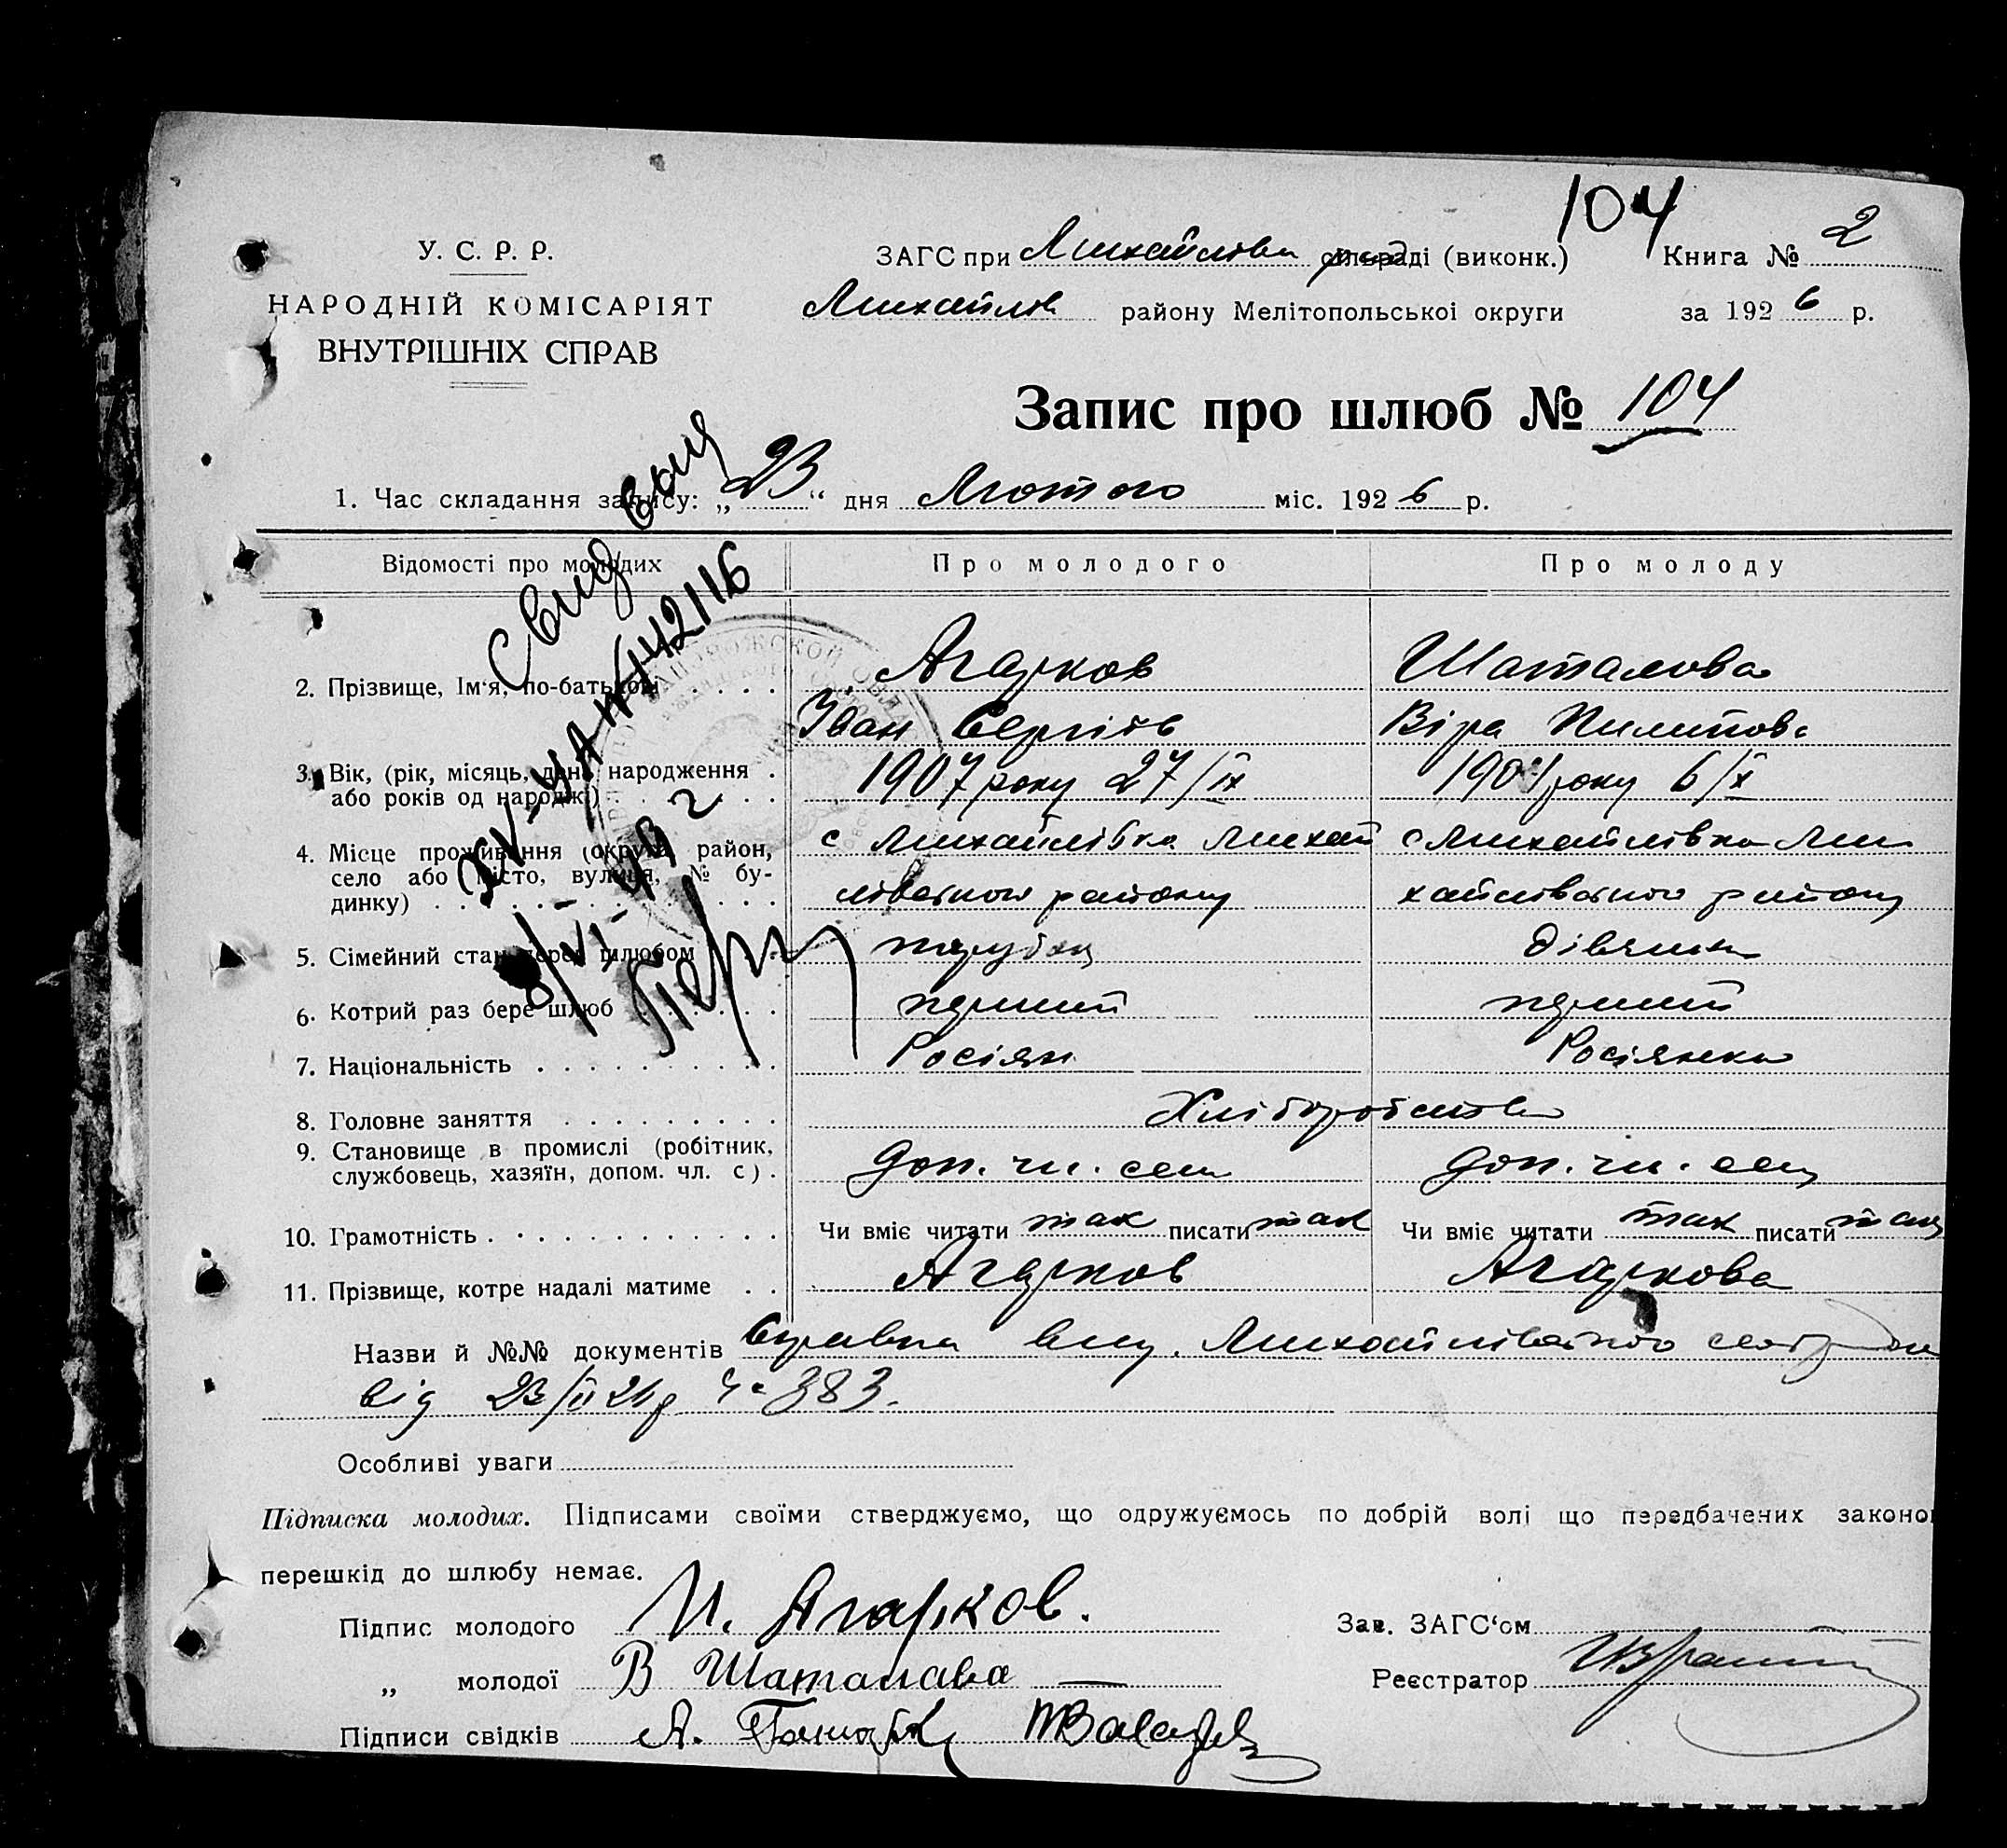 104
У. С. Р. Р.
НАРОДНІЙ КОМІСАРІЯТ
ВНУТРІШНІХ СПРАВ
ЗАГС при Михайлівск сільраді (виконк.) Книга № 2
Михайлів району Мелітопольськоі округи за 1926 р.
Запис про шлюб № 104
1. Час складання запису: „23“ дня Лютого міс. 1926 р.
Відомості про молодих Про молодого Про молоду
2. Прізвище, Ім‘я, по-батькові Агарков Шаталова
Іван Сергіїв Віра Пилипова
3. Вік, (рік, місяць, день народження 1907 року 27/IX року 6/X
або років од народж.)
4. Місце проживання (округа, район, с Михайлівка Михай с Михайлівка Ми
село або місто, вулиця, № бу-
динку) лівського району хайлівського району
5. Сімейний стан перед шлюбом парубок дівчина
6. Котрий раз бере шлюб перший перший
7. Національність Росіян Росіянка
8. Головне заняття Хліборобство
9. Становище в промислі (робітник, доп. чл. сем доп. чл. сем
службовець, хазяїн, допом. чл. с)
10. Грамотність Чи вміє читати так писати так Чи вміє читати так писати так
11. Прізвище, котре надалі матиме Агарков Агаркова
Назви й №№ документів Справка вид. Михайлівського
від 23/II 26 р Чс 383.
Особливі уваги
Підписка молодих. Підписами своїми стверджуємо, що одружуємось по добрій волі що передбачених законо
перешкід до шлюбу немає.
Підпис молодого И. Агарков. Зав. ЗАГС‘ом
„ молодої В Шаталава Реєстратор
Підписи свідків А.
Свид
442116